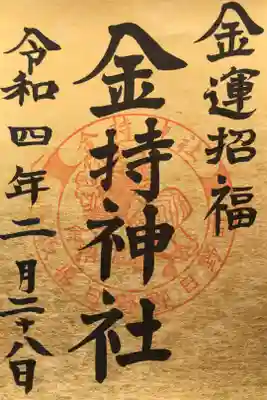 金運招福
金持神社
令和四年二月二十八日